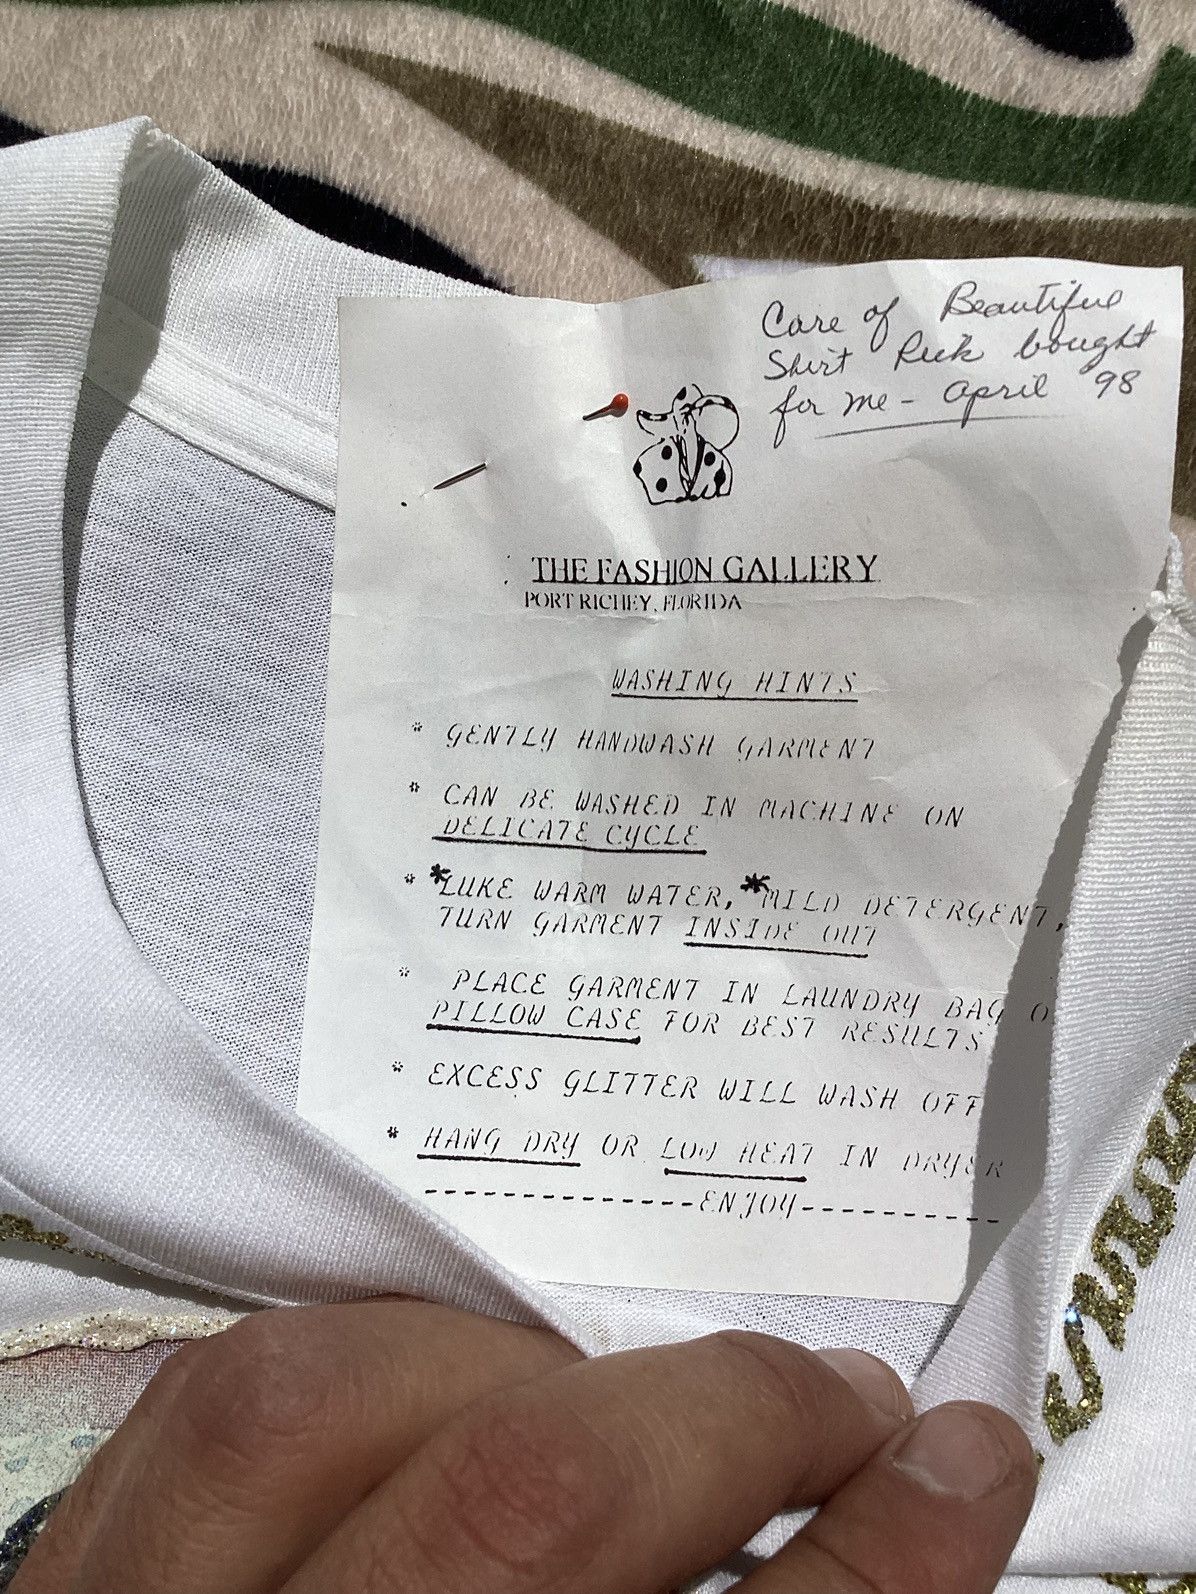 Care of Beautiful
Shirt Rick bought
for me - April 98
THE FASHION GALLERY
PORT RICHEY, FLORIDA
WASHING HINTS
* GENTLY HANDWASH GARMENT
* CAN BE WASHED IN MACHINE ON
DELICATE CYCLE
* *LUKE WARM WATER, *MILD DETERGENT,
TURN GARMENT INSIDE OUT
* PLACE GARMENT IN LAUNDRY BAG O
PILLOW CASE FOR BEST RESULTS
* EXCESS GLITTER WILL WASH OFF
* HANG DRY OR LOW HEAT IN DRYER
--------------ENJOY-----------